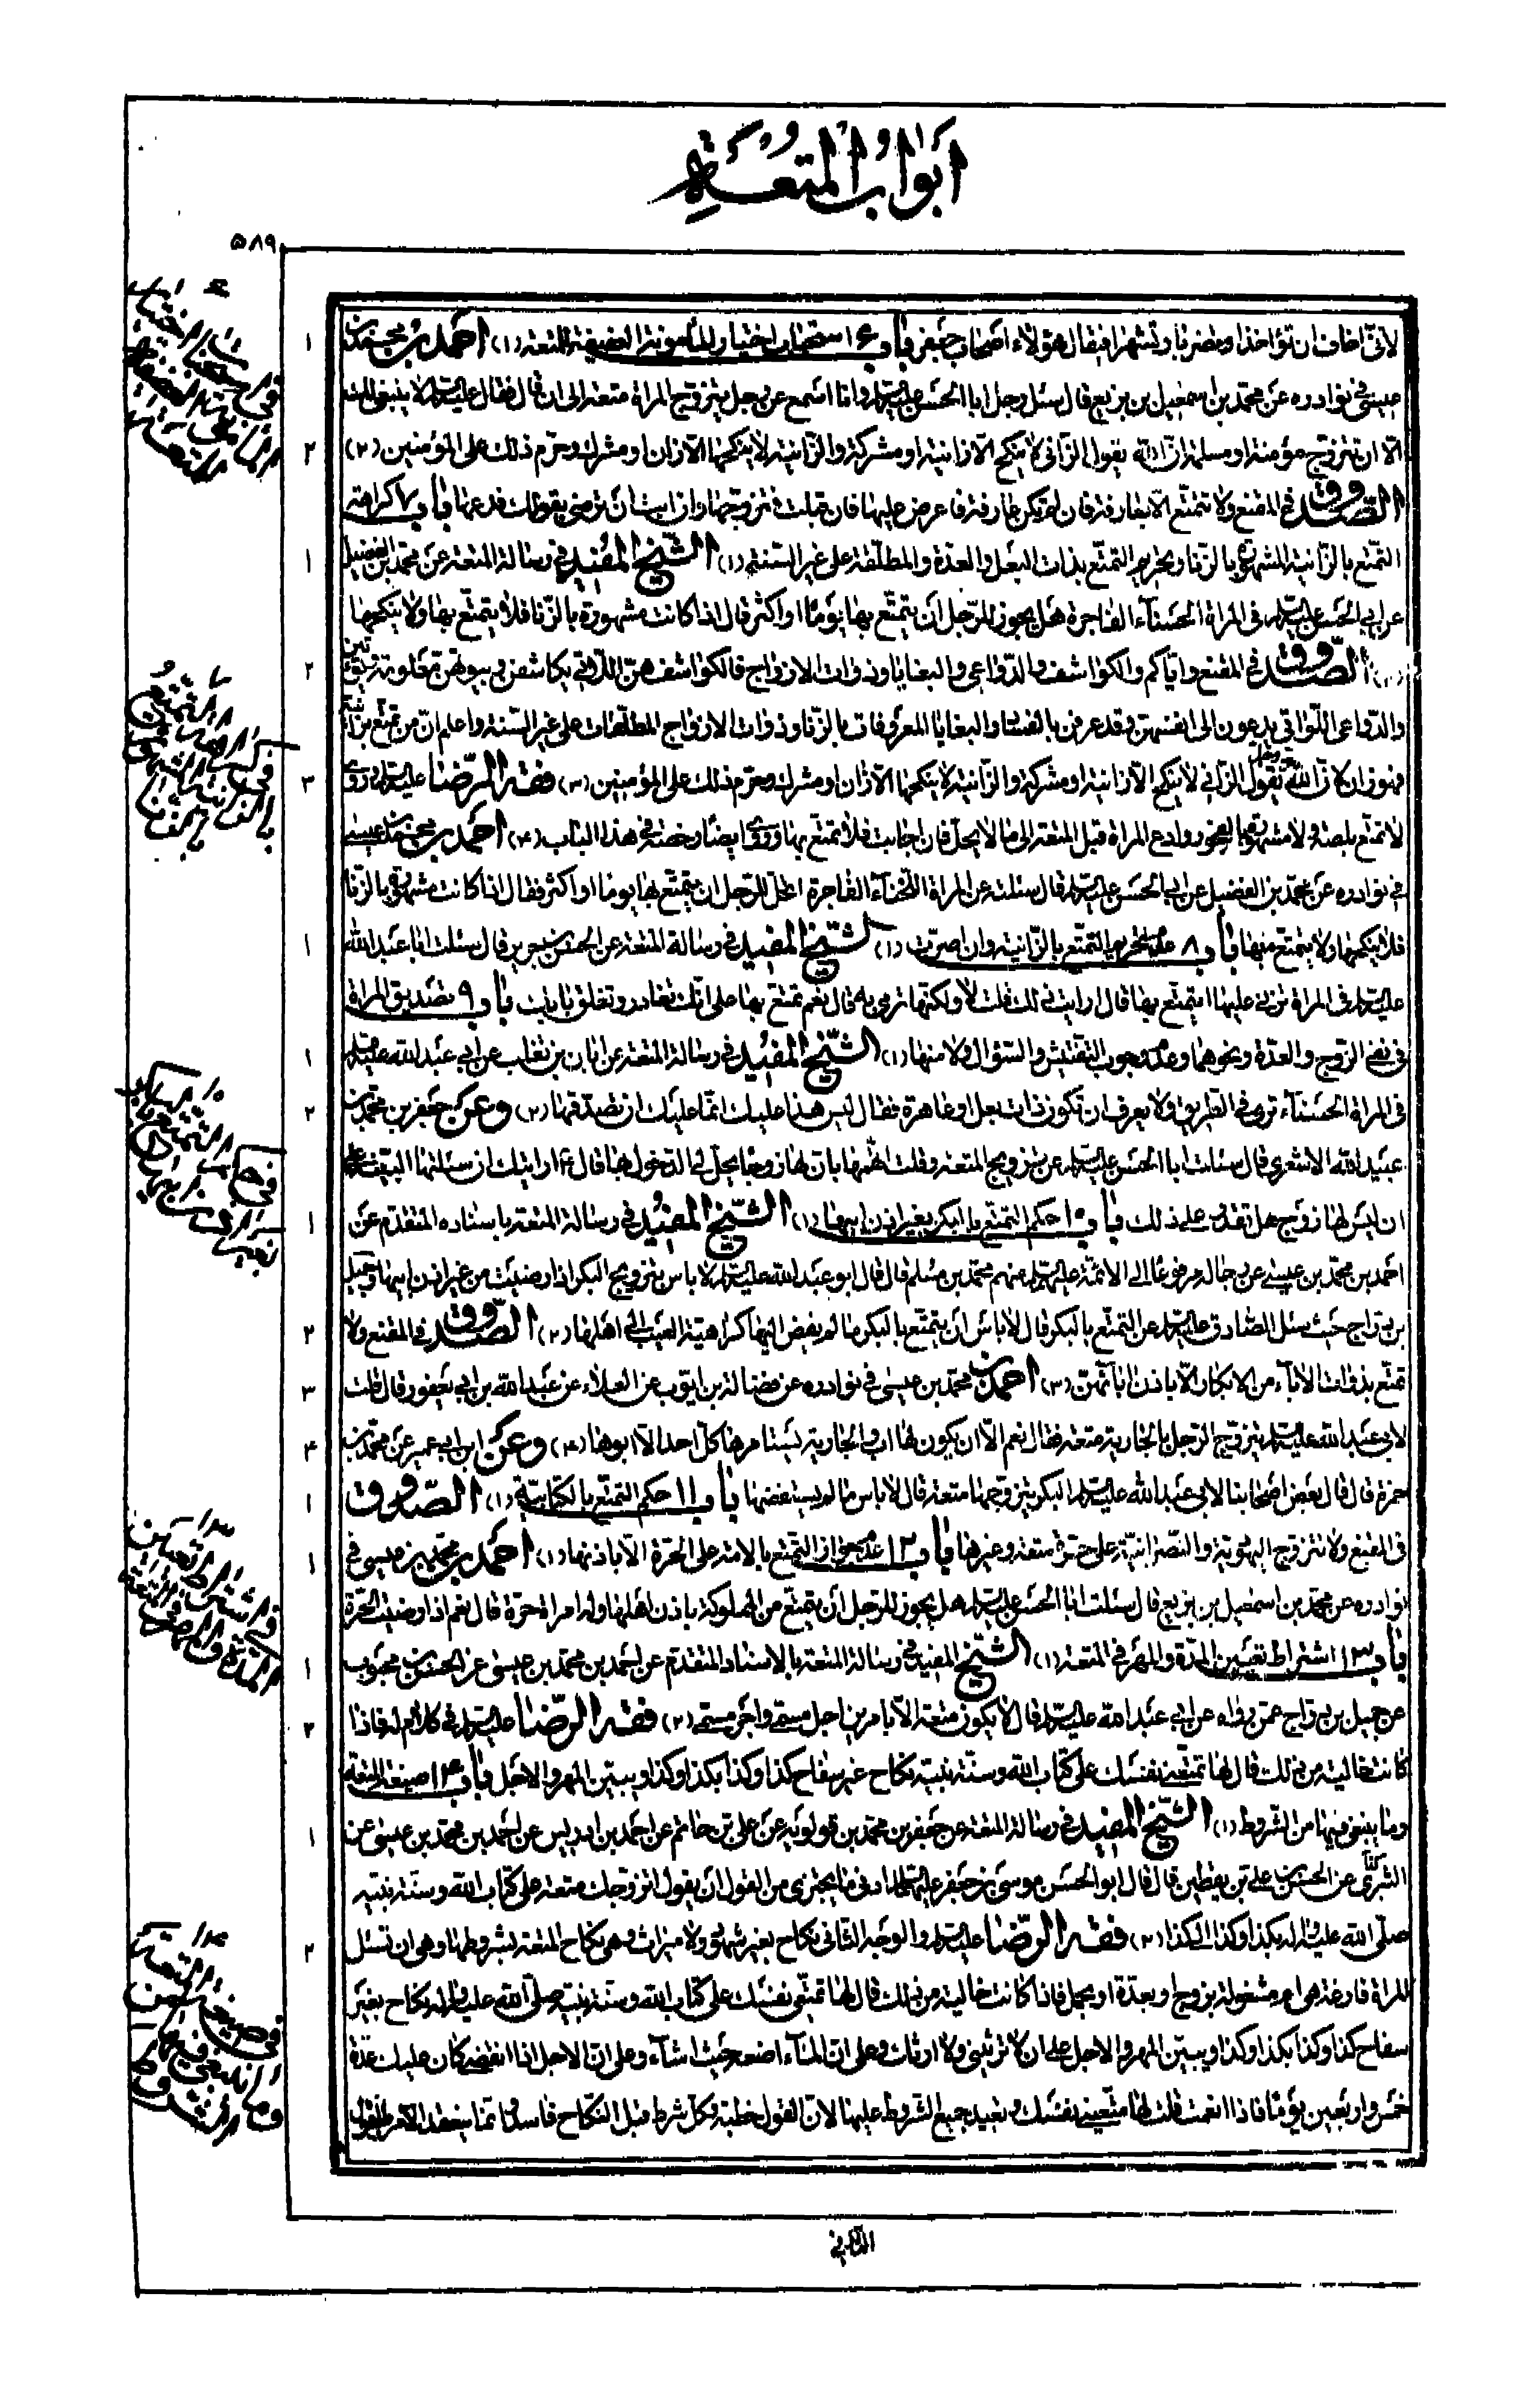 ابواب المتعة
۵۸۹
لانى اخاف ان تؤاخذوا وتضربوا وتشهروا فيقال هؤلاء اصحاب جعفر باب ۶ استحباب اختيار المأمونة العفيفة للمتعة (۱) احمد بن محمد بن
عيسى فى نوادره عن محمد بن اسمعيل بن بزيع قال سئل رجل ابا الحسن عليه السلم وانا اسمع عن رجل يتزوج المراة متعة الى ان قال فقال عليه السلم لا ينبغى لك
الا ان تتزوج مؤمنة او مسلمة ان الله يقول الزانى لا ينكح الا زانية او مشركة والزانية لا ينكحها الا زان او مشرك وحرم ذلك على المؤمنين (۲)
الصدوق فى المقنع ولا تتمتع الا بعارفة فان لم تكن عارفة فاعرض عليها فان قبلت فتزوجها وان ابت ان ترضى بقولك فدعها باب ۷ كراهة
التمتع بالزانية المشهورة بالزنا وتحريم التمتع بذات البعل والعدة والمطلقة على غير السنة (۱) الشيخ المفيد فى رسالة المتعة عن محمد بن الفضيل
عن ابى الحسن عليه السلم فى المراة الحسناء الفاجرة هل يجوز للرجل ان يتمتع بها يوما او اكثر قال اذا كانت مشهورة بالزنا فلا يتمتع بها ولا ينكحها
(۲) الصدوق فى المقنع واياكم والكواشف والدواعى والبغايا وذوات الازواج فالكواشف هن اللواتى يكاشفن وبيوتهن معلومة ويؤتين
والدواعى اللواتى يدعون الى انفسهن وقد عرفن بالفساد والبغايا المعروفات بالزنا وذوات الازواج المطلقات على غير السنة واعلم ان من تمتع بزانية
فهو زان لان الله يقول الزانى لا ينكح الا زانية او مشركة والزانية لا ينكحها الا زان او مشرك وحرم ذلك على المؤمنين (۳) فقه الرضا عليه السلم روى
لا تمتع بلصة ولا مشهورة بالفجور وادع المراة قبل المتعة الى ما لا يحل فان اجابت فلا تمتع بها وروى ايضا رخصة فى هذا الباب (۴) احمد بن محمد بن عيسى
فى نوادره عن محمد بن الفضيل عن ابى الحسن عليه السلم قال سئلته عن المراة الفاجرة اتحل للرجل ان يتمتع بها يوما او اكثر فقال اذا كانت مشهورة بالزنا
فلا ينكحها ولا يتمتع منها باب ۸ عدم تحريم التمتع بالزانية وان اصرت (۱) الشيخ المفيد فى رسالة المتعة عن الحسن بن جرير قال سئلت ابا عبد الله
عليه السلم فى المراة تزنى عليها ايتمتع بها قال ارايت ذلك قلت لا ولكنها ترمى به قال نعم تمتع بها على انك تغادر وتغلق بابك باب ۹ تصديق المراة
فى نفى الزوج والعدة ونحوهما وعدم وجوب التفتيش والسؤال ولا منها (۱) الشيخ المفيد فى رسالة المتعة عن ابان بن تغلب عن ابى عبد الله عليه السلم
فى المراة الحسناء ترى فى الطريق ولا يعرف ان تكون ذات بعل او عاهرة فقال ليس هذا عليك انما عليك ان تصدقها (۲) وعن جعفر بن محمد بن
عبيد الله الاشعرى قال سئلت ابا الحسن عليه السلم عن تزويج المتعة وقلت اتهمها بان لها زوجا يحل لى الدخول بها قال ع ارايتك ان سئلتها البينة على
ان ليس لها زوج هل تقدر على ذلك باب ۱۰ حكم التمتع بالبكر بغير اذن ابيها (۱) الشيخ المفيد فى رسالة المتعة باسناده المتقدم عن
احمد بن محمد بن عيسى عن رجاله مرفوعا الى الائمة عليهم السلم منهم محمد بن مسلم قال قال ابو عبد الله عليه السلم لا باس بتزويج البكر اذا رضيت من غير اذن ابيها وجميل
بن دراج حيث سئل الصادق عليه السلم عن التمتع بالبكر قال لا باس ان يتمتع بالبكر ما لم يفض اليها كراهية العيب الى اهلها (۲) الصدوق فى المقنع ولا
تمتع بذوات الاباء من الابكار الا باذن ابائهن (۳) احمد بن محمد بن عيسى فى نوادره عن فضالة بن ايوب عن العلاء عن عبد الله بن ابى يعفور قال قلت
لابى عبد الله عليه السلم يتزوج الرجل بالجارية متعة فقال نعم الا ان يكون لها اب والجارية يستامرها كل احد الا ابوها (۴) وعن ابن ابى عمير عن محمد بن
حمزة قال قال بعض اصحابنا لابى عبد الله عليه السلم البكر يتزوجها متعة قال لا باس ما لم يستفضها باب ۱۱ حكم التمتع بالكتابية (۱) الصدوق
فى المقنع ولا تتزوج اليهودية والنصرانية على حرة متعة وغيرها باب ۱۲ عدم جواز التمتع بالامة على الحرة الا باذنها (۱) احمد بن محمد بن عيسى فى
نوادره عن محمد بن اسمعيل بن بزيع قال سئلت ابا الحسن عليه السلم هل يجوز للرجل ان يتمتع من المملوكة باذن اهلها وله امراة حرة قال نعم اذا رضيت الحرة
باب ۱۳ اشتراط تعيين المدة والمهر فى المتعة (۱) الشيخ المفيد فى رسالة المتعة بالاسناد المتقدم عن احمد بن محمد بن عيسى عن الحسن بن محبوب
عن جميل بن دراج عمن رواه عن ابى عبد الله عليه السلم قال لا يكون متعة الا بامرين اجل مسمى واجر مسمى (۲) فقه الرضا عليه السلم فى كلام له فاذا
كانت خالية من ذلك قال لها تمتعينى نفسك على كتاب الله وسنة نبيه نكاح غير سفاح كذا وكذا بكذا وكذا ويبين المهر والاجل باب ۱۴ صيغة المتعة
وما ينبغى فيها من الشروط (۱) الشيخ المفيد فى رسالة المتعة عن جعفر بن محمد بن قولويه عن على بن حاتم عن احمد بن ادريس عن احمد بن محمد بن عيسى عن
عن الحسن بن على بن يقطين قال قال ابو الحسن موسى بن جعفر عليهما السلم ادنى ما يجتزى من القول ان يقول اتزوجك متعة على كتاب الله وسنة نبيه
صلى الله عليه واله بكذا وكذا الى كذا (۲) فقه الرضا عليه السلم والوجه الثانى نكاح بغير شهود ولا ميراث وهى نكاح المتعة بشروطها وهى ان تسئل
المراة فارغة هى ام مشغولة بزوج او بعدة او بحمل فاذا كانت خالية من ذلك قال لها تمتعى نفسك على كتاب الله وسنة نبيه صلى الله عليه واله نكاح بغير
سفاح كذا وكذا بكذا وكذا ويبين المهر والاجل على ان لا ترثينى ولا ارثك وعلى ان الماء اضعه حيث اشاء وعلى ان الاجل اذا انقضى كان عليك عدة
خمس واربعين يوما فاذا انعمت قلت لها متعينى نفسك وتعيد جميع الشروط عليها لان القول خطبة وكل شرط قبل النكاح فاسد وانما ينعقد الامر بالقول
الثانى